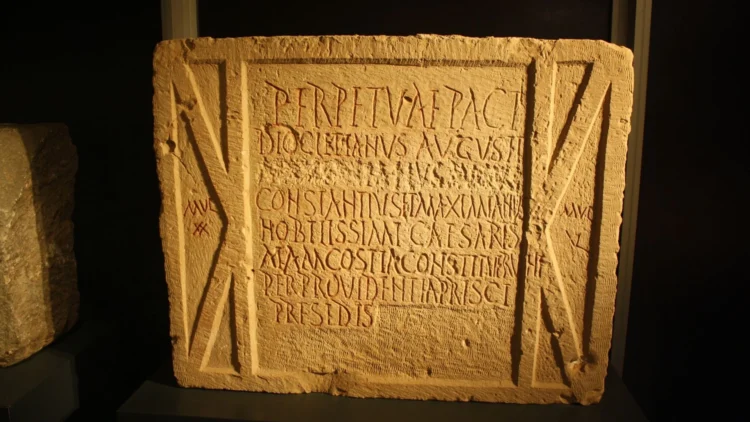 PERPETVAE PACI
DIOCLETIANVS AVGVSTI
CONSTANTIVS ET MAXIMIANVS
NOBILISSIMI CAESARIS
MAM COSTIA CONSTITVERVNT
PER PROVIDENTIA PRISCI
PRESEDIS
MVL
XX
MVL